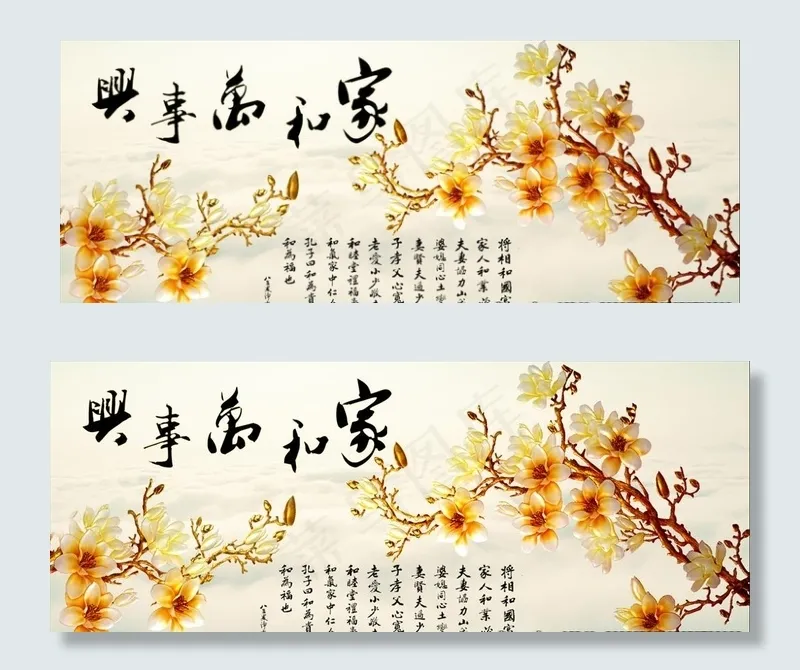 家和萬事興
将相和國
家人和業
夫妻協力山
婆媳同心土
妻賢夫過少
子孝父心寬
老愛小少敬
和睦堂禮福
和氣家中仁
孔子曰和為貴
和為福也
家和萬事興
将相和國
家人和業
夫妻協力山
婆媳同心土
妻賢夫過少
子孝父心寬
老愛小少敬
和睦堂禮福
和氣家中仁
孔子曰和為貴
和為福也